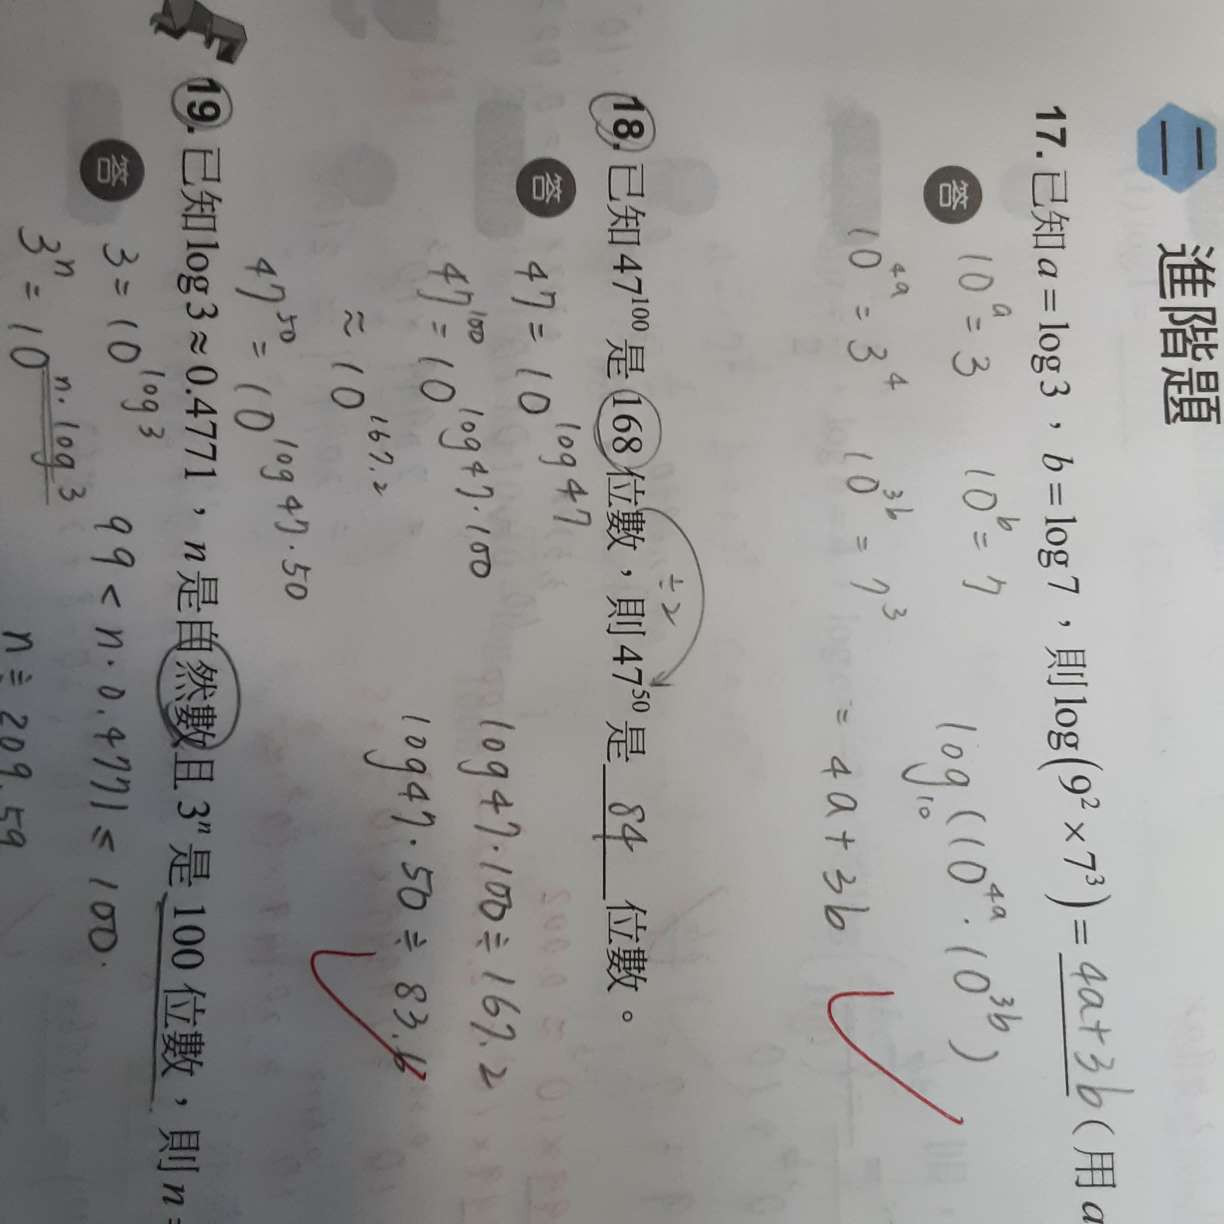 二 進階題
17. 已知 a = log3，b = log7，則 log(9² × 7³) = 4a+3b (用 a
答 10^a = 3 10^b = 7 log₁₀(10^4a · 10^3b)
10^4a = 3^4 10^3b = 7^3 = 4a+3b
÷2
18. 已知 47^100 是 168 位數，則 47^50 是 84 位數。
答 47 = 10^log47 log47·100 ≒ 167.2
47^100 = 10^log47·100 log47·50 ≒ 83.6
≈ 10^167.2
47^50 = 10^log47·50
19. 已知 log3 ≈ 0.4771，n 是自然數且 3^n 是 100 位數，則 n =
答 3 = 10^log3 99 < n·0.4771 ≤ 100.
3^n = 10^n·log3 n ≒ 209.59